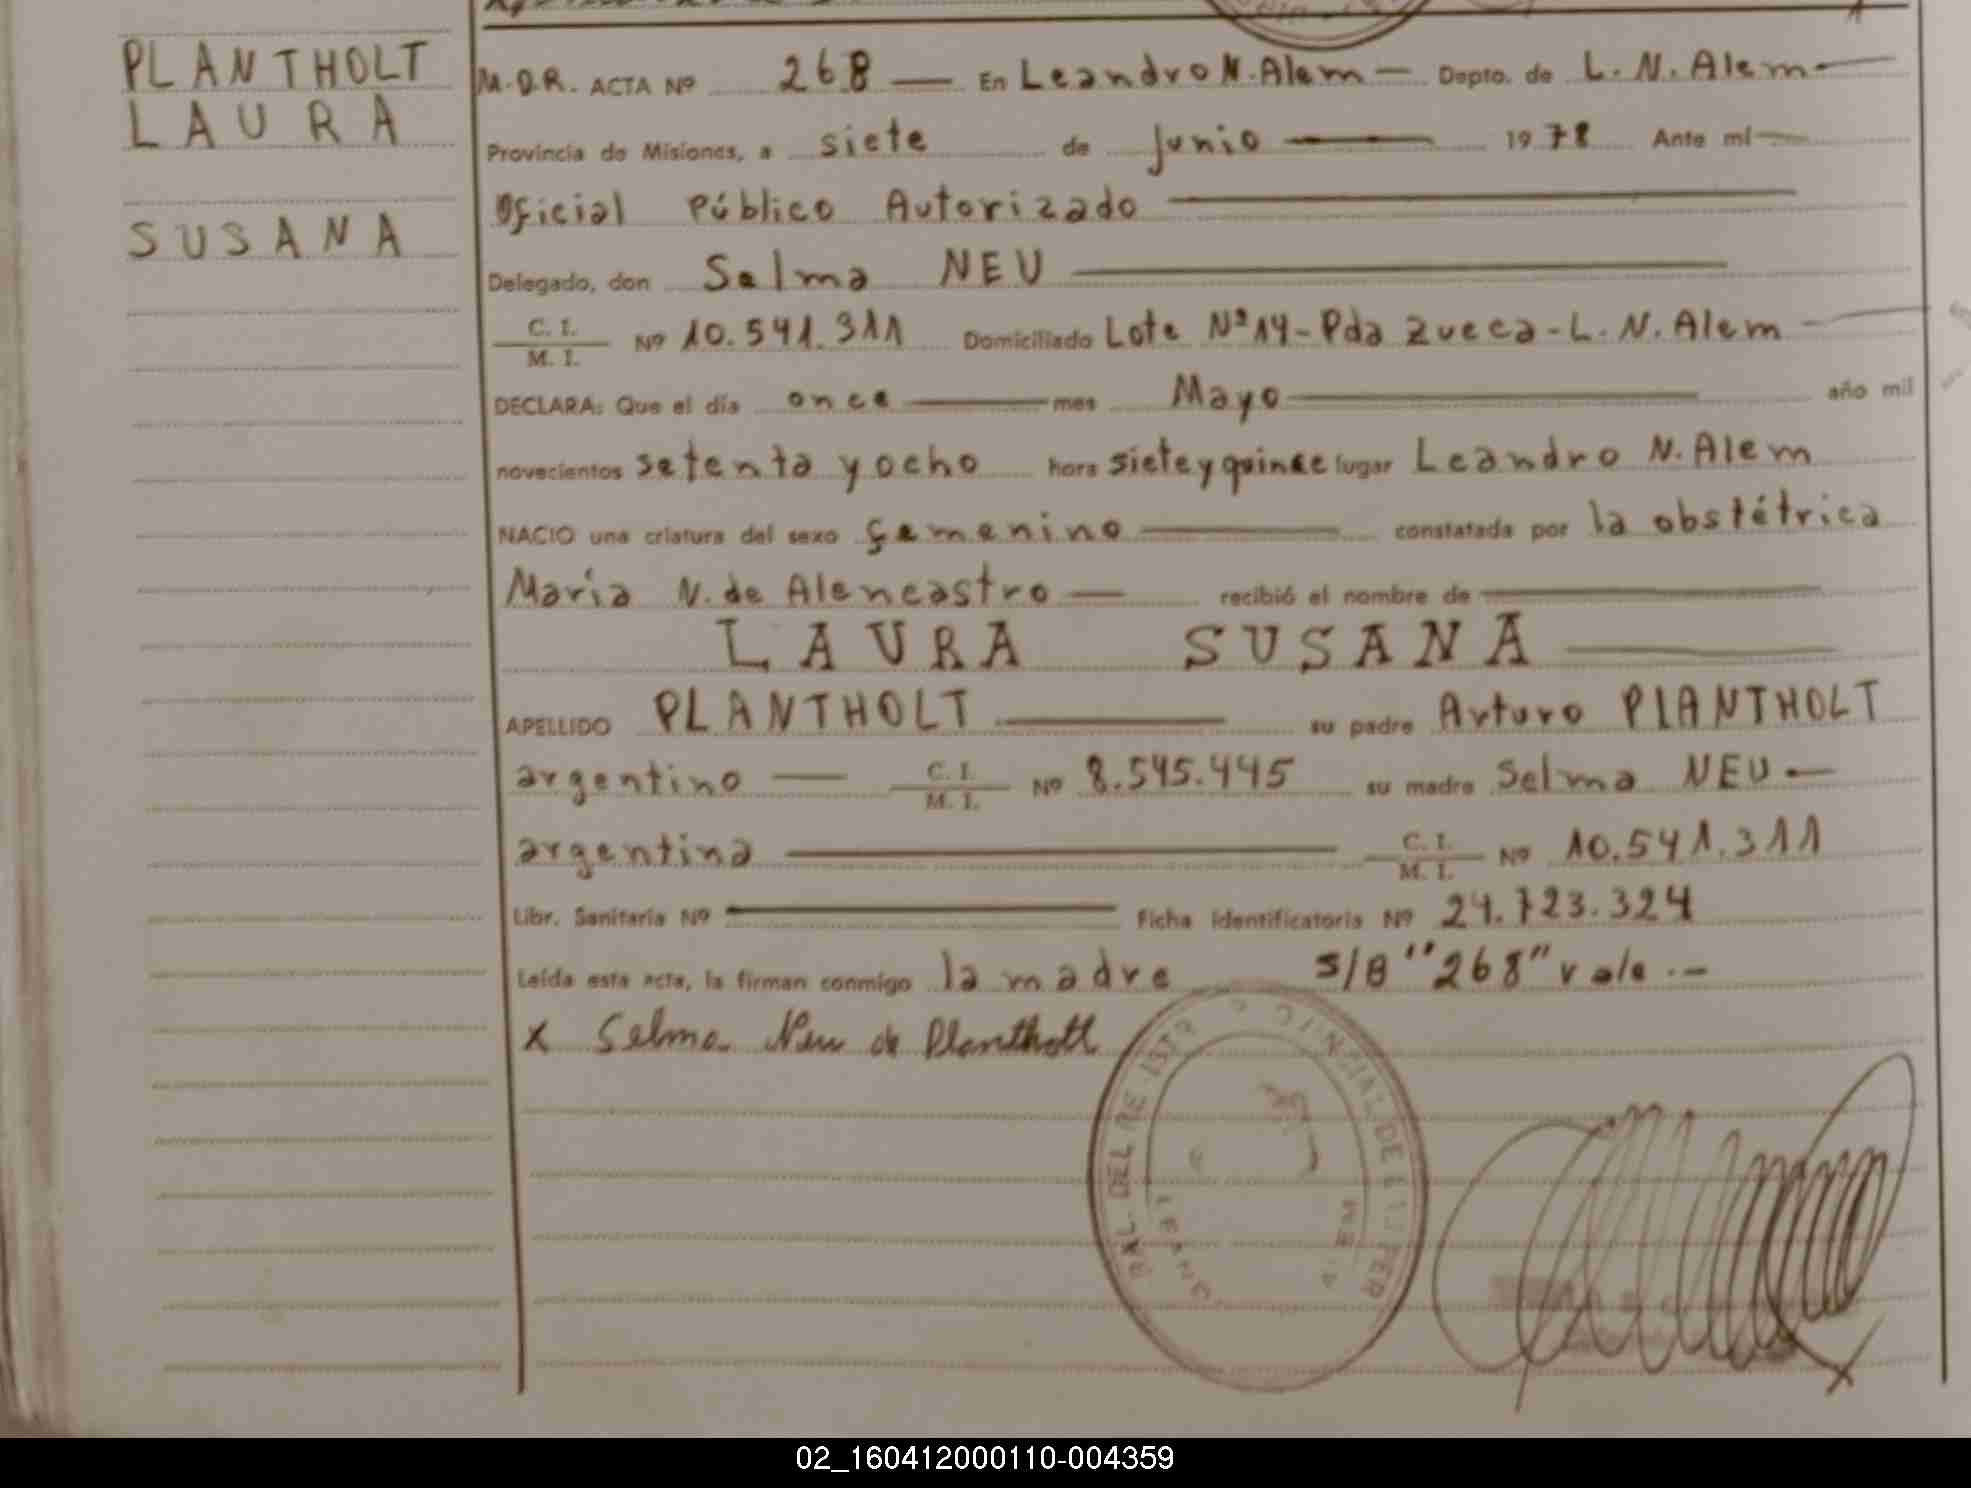 PLANTHOLT
LAURA
SUSANA
M.D.R. ACTA Nº 268 — En Leandro N. Alem — Depto. de L. N. Alem —
Provincia de Misiones, a siete de junio — 1978 Ante mí —
Oficial Público Autorizado —
Delegado, don Selma NEU —
C. I. / M. I. Nº 10.541.311 Domiciliado Lote Nº 14 - Pda Zueca - L. N. Alem —
DECLARA: Que el día once — mes Mayo — año mil
novecientos setenta y ocho hora siete y quince lugar Leandro N. Alem
NACIO una criatura del sexo femenino — constatada por la obstétrica
María N. de Alencastro — recibió el nombre de —
LAURA SUSANA —
APELLIDO PLANTHOLT — su padre Arturo PLANTHOLT
argentino — C. I. / M. I. Nº 8.545.445 su madre Selma NEU —
argentina — C. I. / M. I. Nº 10.541.311
Libr. Sanitaria Nº — Ficha identificatoria Nº 24.723.324
Leída esta acta, la firman conmigo la madre S/B "268" vale.-
x Selma Neu de Plantholt
02_160412000110-004359